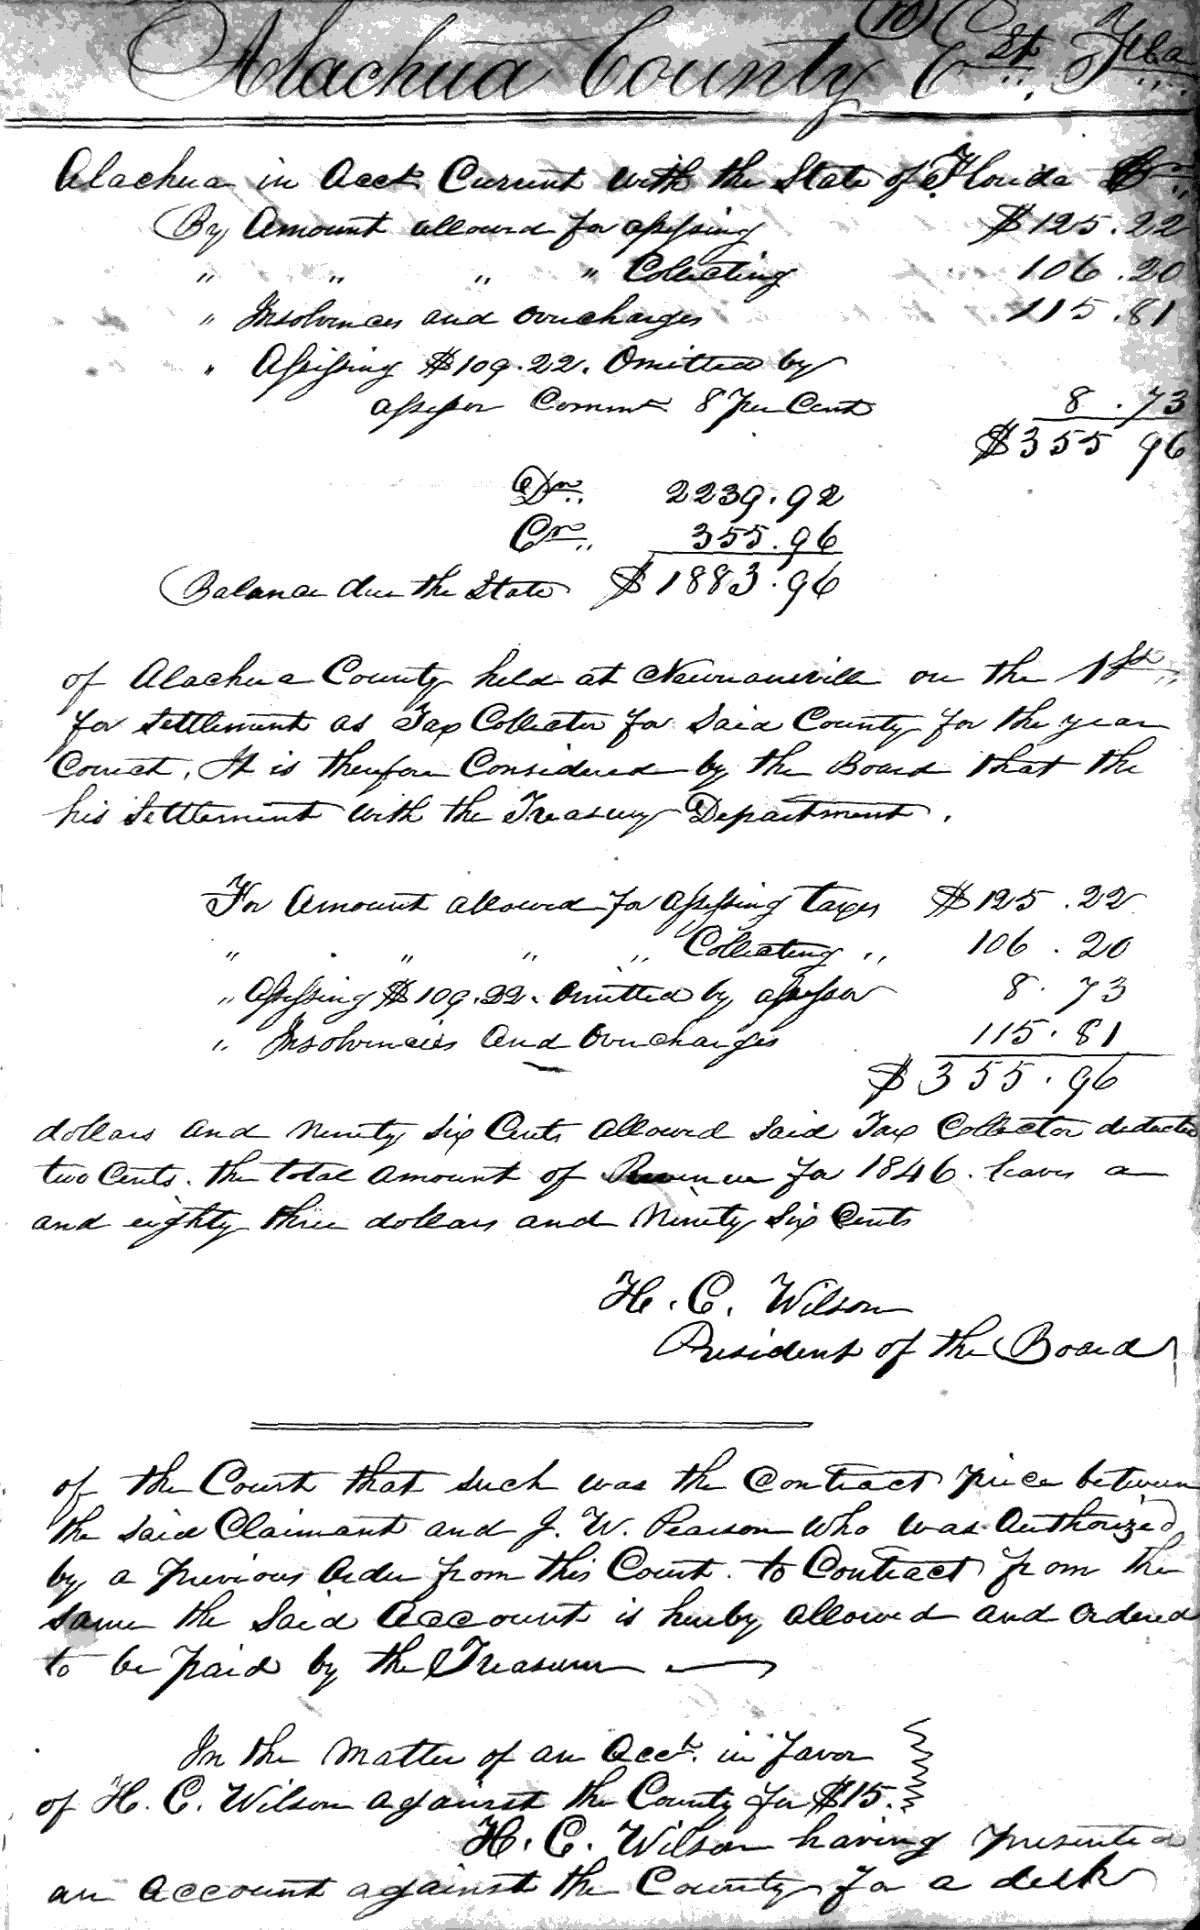 (10)
Alachua County E St. Fl.a
Alachua in Acct. Current with the State of Florida Cr.
By Amount allowed for assessing $125.22
" " " " Collecting 106.20
" Insolvences and overcharges 115.81
" Assessing $109.22. Omitted by
assessor Commt. 8 per Cent 8.73
$355 96
Dr. 2239.92
Cr. 355.96
Balance due the State $1883.96
of Alachua County held at Newnansville on the 1st
for settlement as Tax Collector for said County for the year
Correct. It is therefore Considered by the Board that the
his settlement with the Treasury Department.
For Amount allowed for assessing taxes $125.22
" " " " Collecting " 106.20
" Assessing $109.22. Omitted by assessor 8.73
" Insolvencies and Overcharges 115.81
$355.96
dollars and ninety six Cents allowed said Tax Collector deducted
two Cents. the total amount of Revenue for 1846. leaves a
and eighty three dollars and Ninety Six Cents
H. C. Wilson
President of the Board
of the Court that such was the Contract price between
the said Claimant and J. W. Pearson who was Authorized
by a previous Order from this Court. to Contract from the
same the said Account is hereby allowed and Ordered
to be paid by the Treasurer
In the matter of an Acct. in favor
of H. C. Wilson against the County for $15.
H. C. Wilson having presented
an Account against the County for a desk